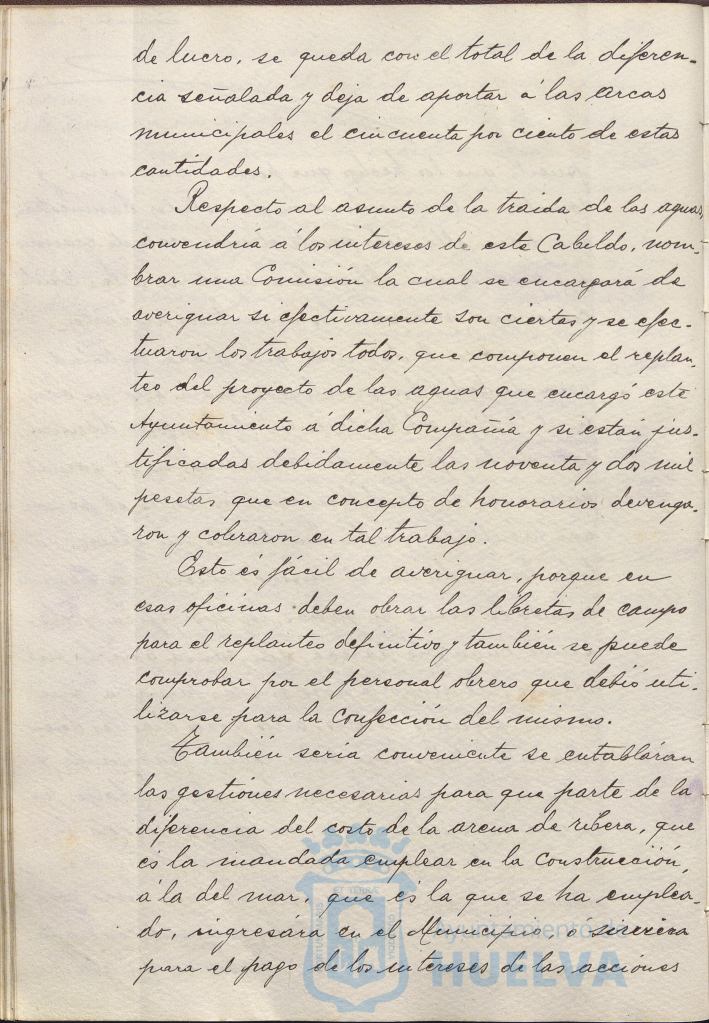 de lucro, se queda con el total de la diferen-
cia señalada y deja de aportar á las arcas
municipales el cincuenta por ciento de estas
cantidades.
Respecto al asunto de la traida de las aguas,
convendría á los intereses de este Cabildo, nom-
brar una Comisión la cual se encargará de
averiguar si efectivamente son ciertas y se efec-
tuaron los trabajos todos, que componen el replan-
teo del proyecto de las aguas que encargó este
Ayuntamiento á dicha Compañía y si están jus-
tificadas debidamente las noventa y dos mil
pesetas que en concepto de honorarios devenga-
ron y cobraron en tal trabajo.
Esto és fácil de averiguar, porque en
esas oficinas deben obrar las libretas de campo
para el replanteo definitivo y también se puede
comprobar por el personal obrero que debió uti-
lizarse para la confección del mismo.
También sería conveniente se entabláran
las gestiónes necesarias para que parte de la
diferencia del costo de la arena de ribera, que
és la mandada emplear en la construcción,
á la del mar, que és la que se ha emplea-
do, ingresára en el Municipio, ó sirviera
para el pago de los intereses de las acciones
Ayuntamiento de
HUELVA